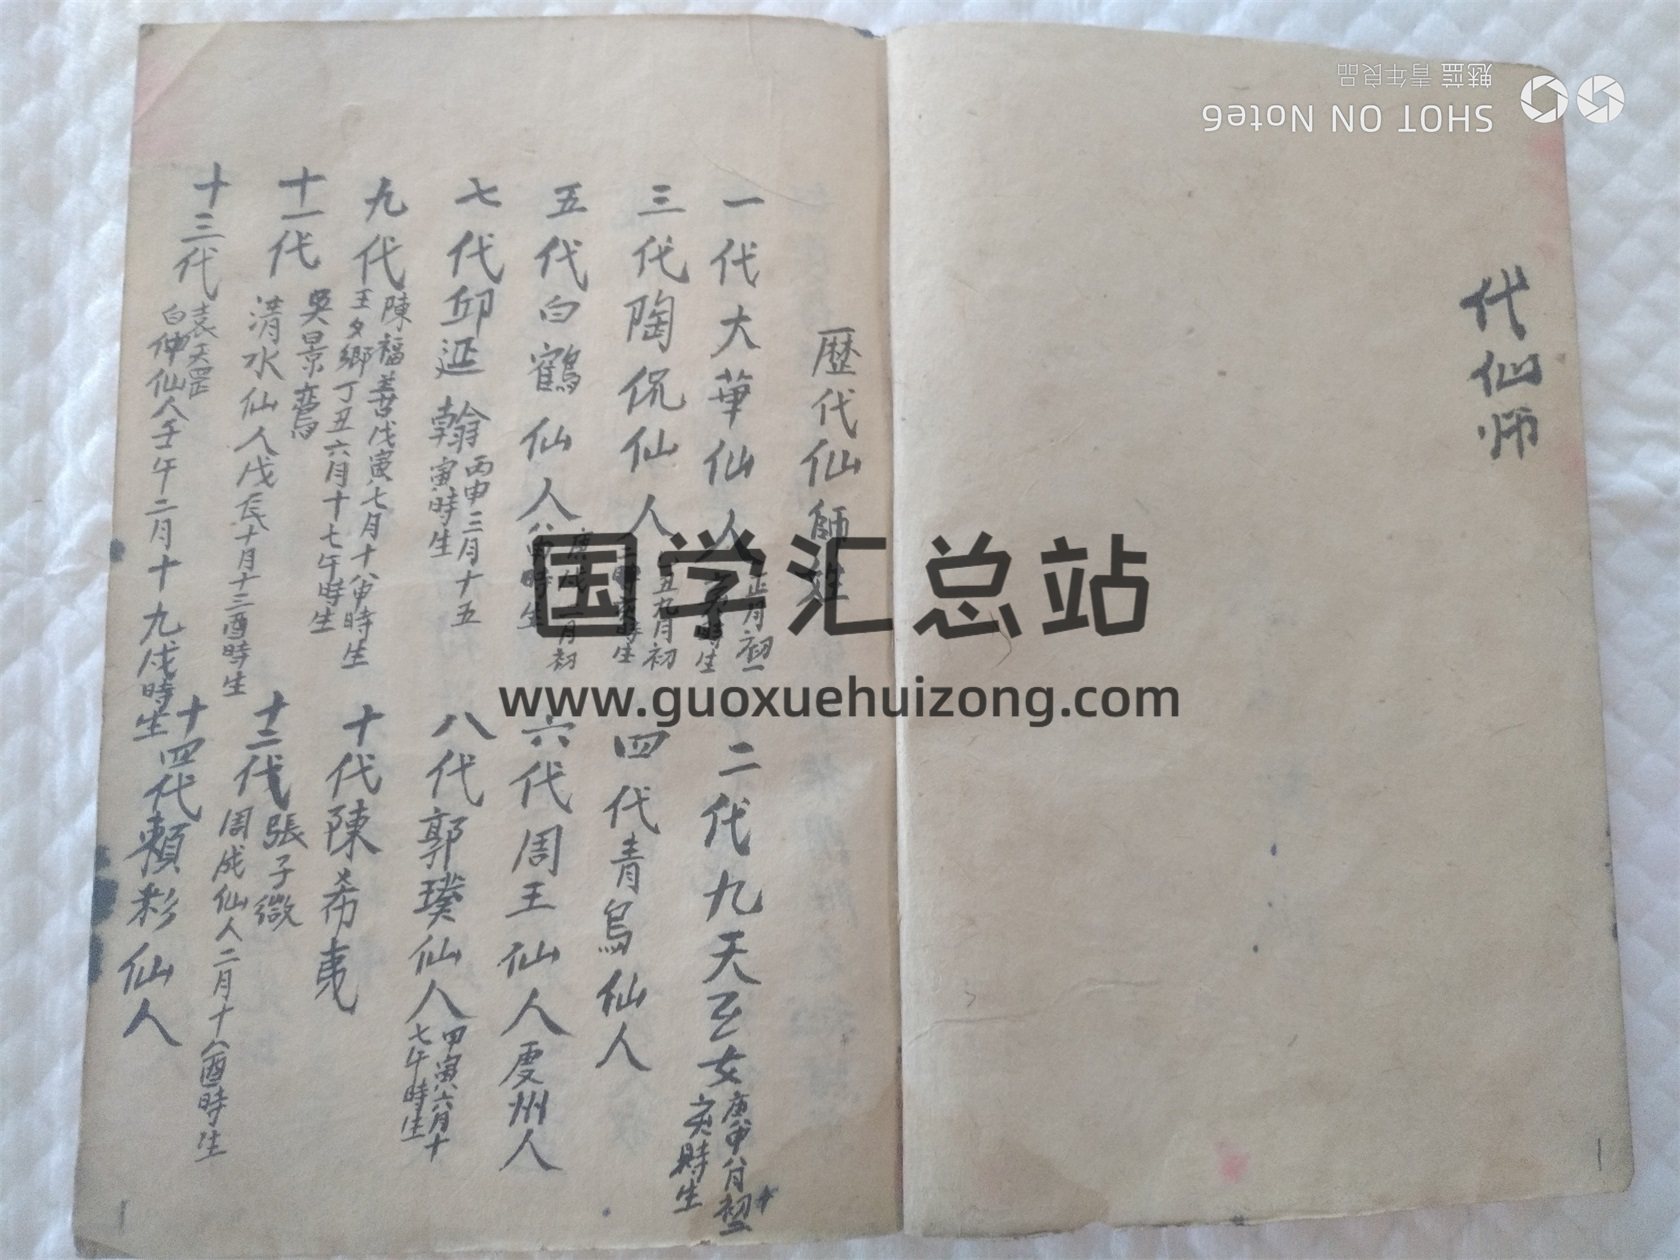 魅蓝 青年良品
SHOT ON Note6
代仙师
歷代仙師
一代大華仙人
正月初一
時生
二代九天玄女
庚申八月初
亥時生
三代陶侃仙人
五九月初
時生
四代青烏仙人
五代白鶴仙人
月初
時生
六代周王仙人虔州人
七代邱延翰
丙申三月十五
寅時生
八代郭璞仙人
甲寅六月十
七午時生
九代
陳福善戊寅七月十八申時生
王夕鄉丁丑六月十七午時生
十代陳希夷
吳景鸞
十一代
清水仙人戊辰十月十三酉時生
十二代
張子微
周成仙人二月十八酉時生
十三代
袁天罡
白仲仙人壬午二月十九戌時生
十四代賴彩仙人
国学汇总站
www.guoxuehuizong.com